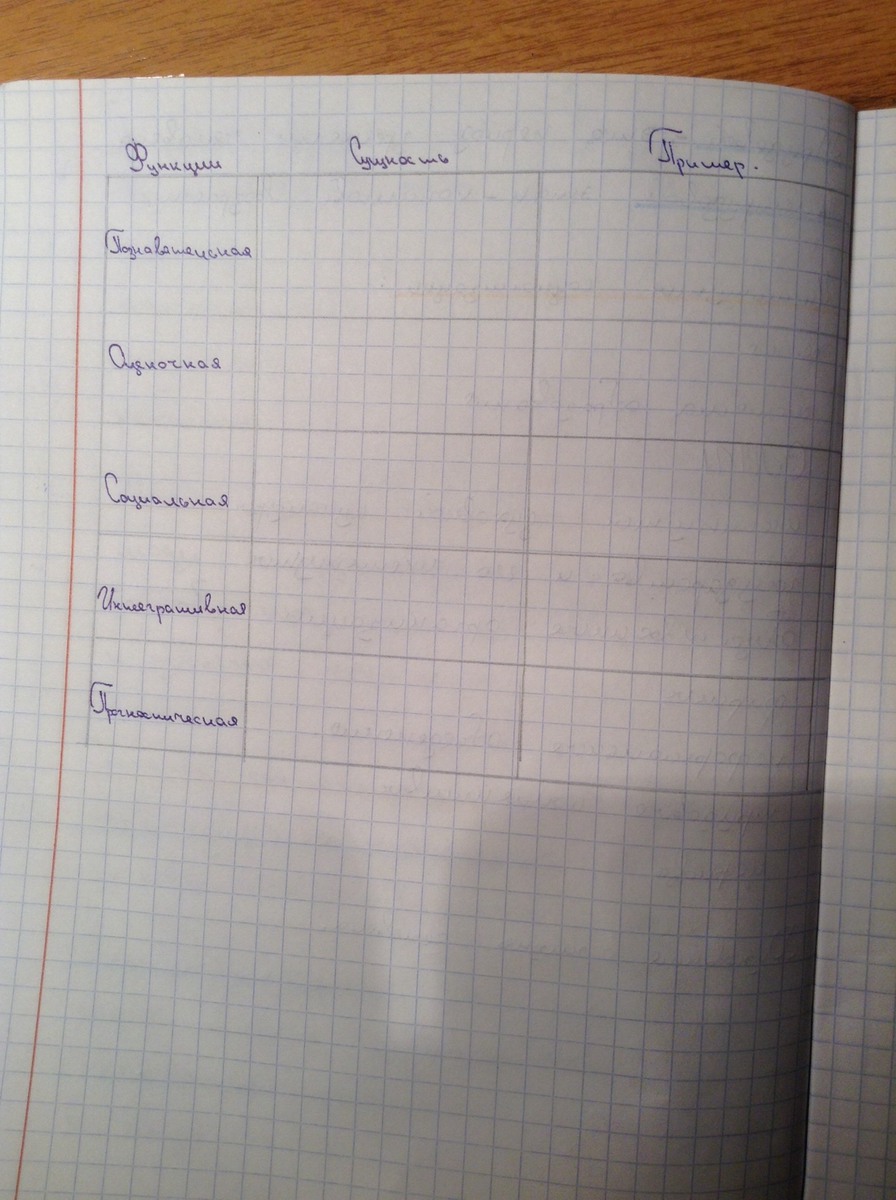 Функции Сущность Пример.
Познавательная
Оценочная
Социальная
Интегративная
Прогностическая